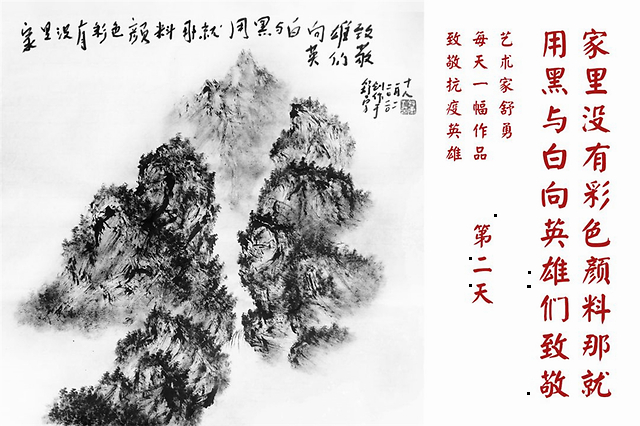 家里没有彩色颜料那就用黑与白向英雄们致敬
家里没有彩色颜料那就
用黑与白向英雄们致敬
艺术家舒勇
每天一幅作品
致敬抗疫英雄
第二天